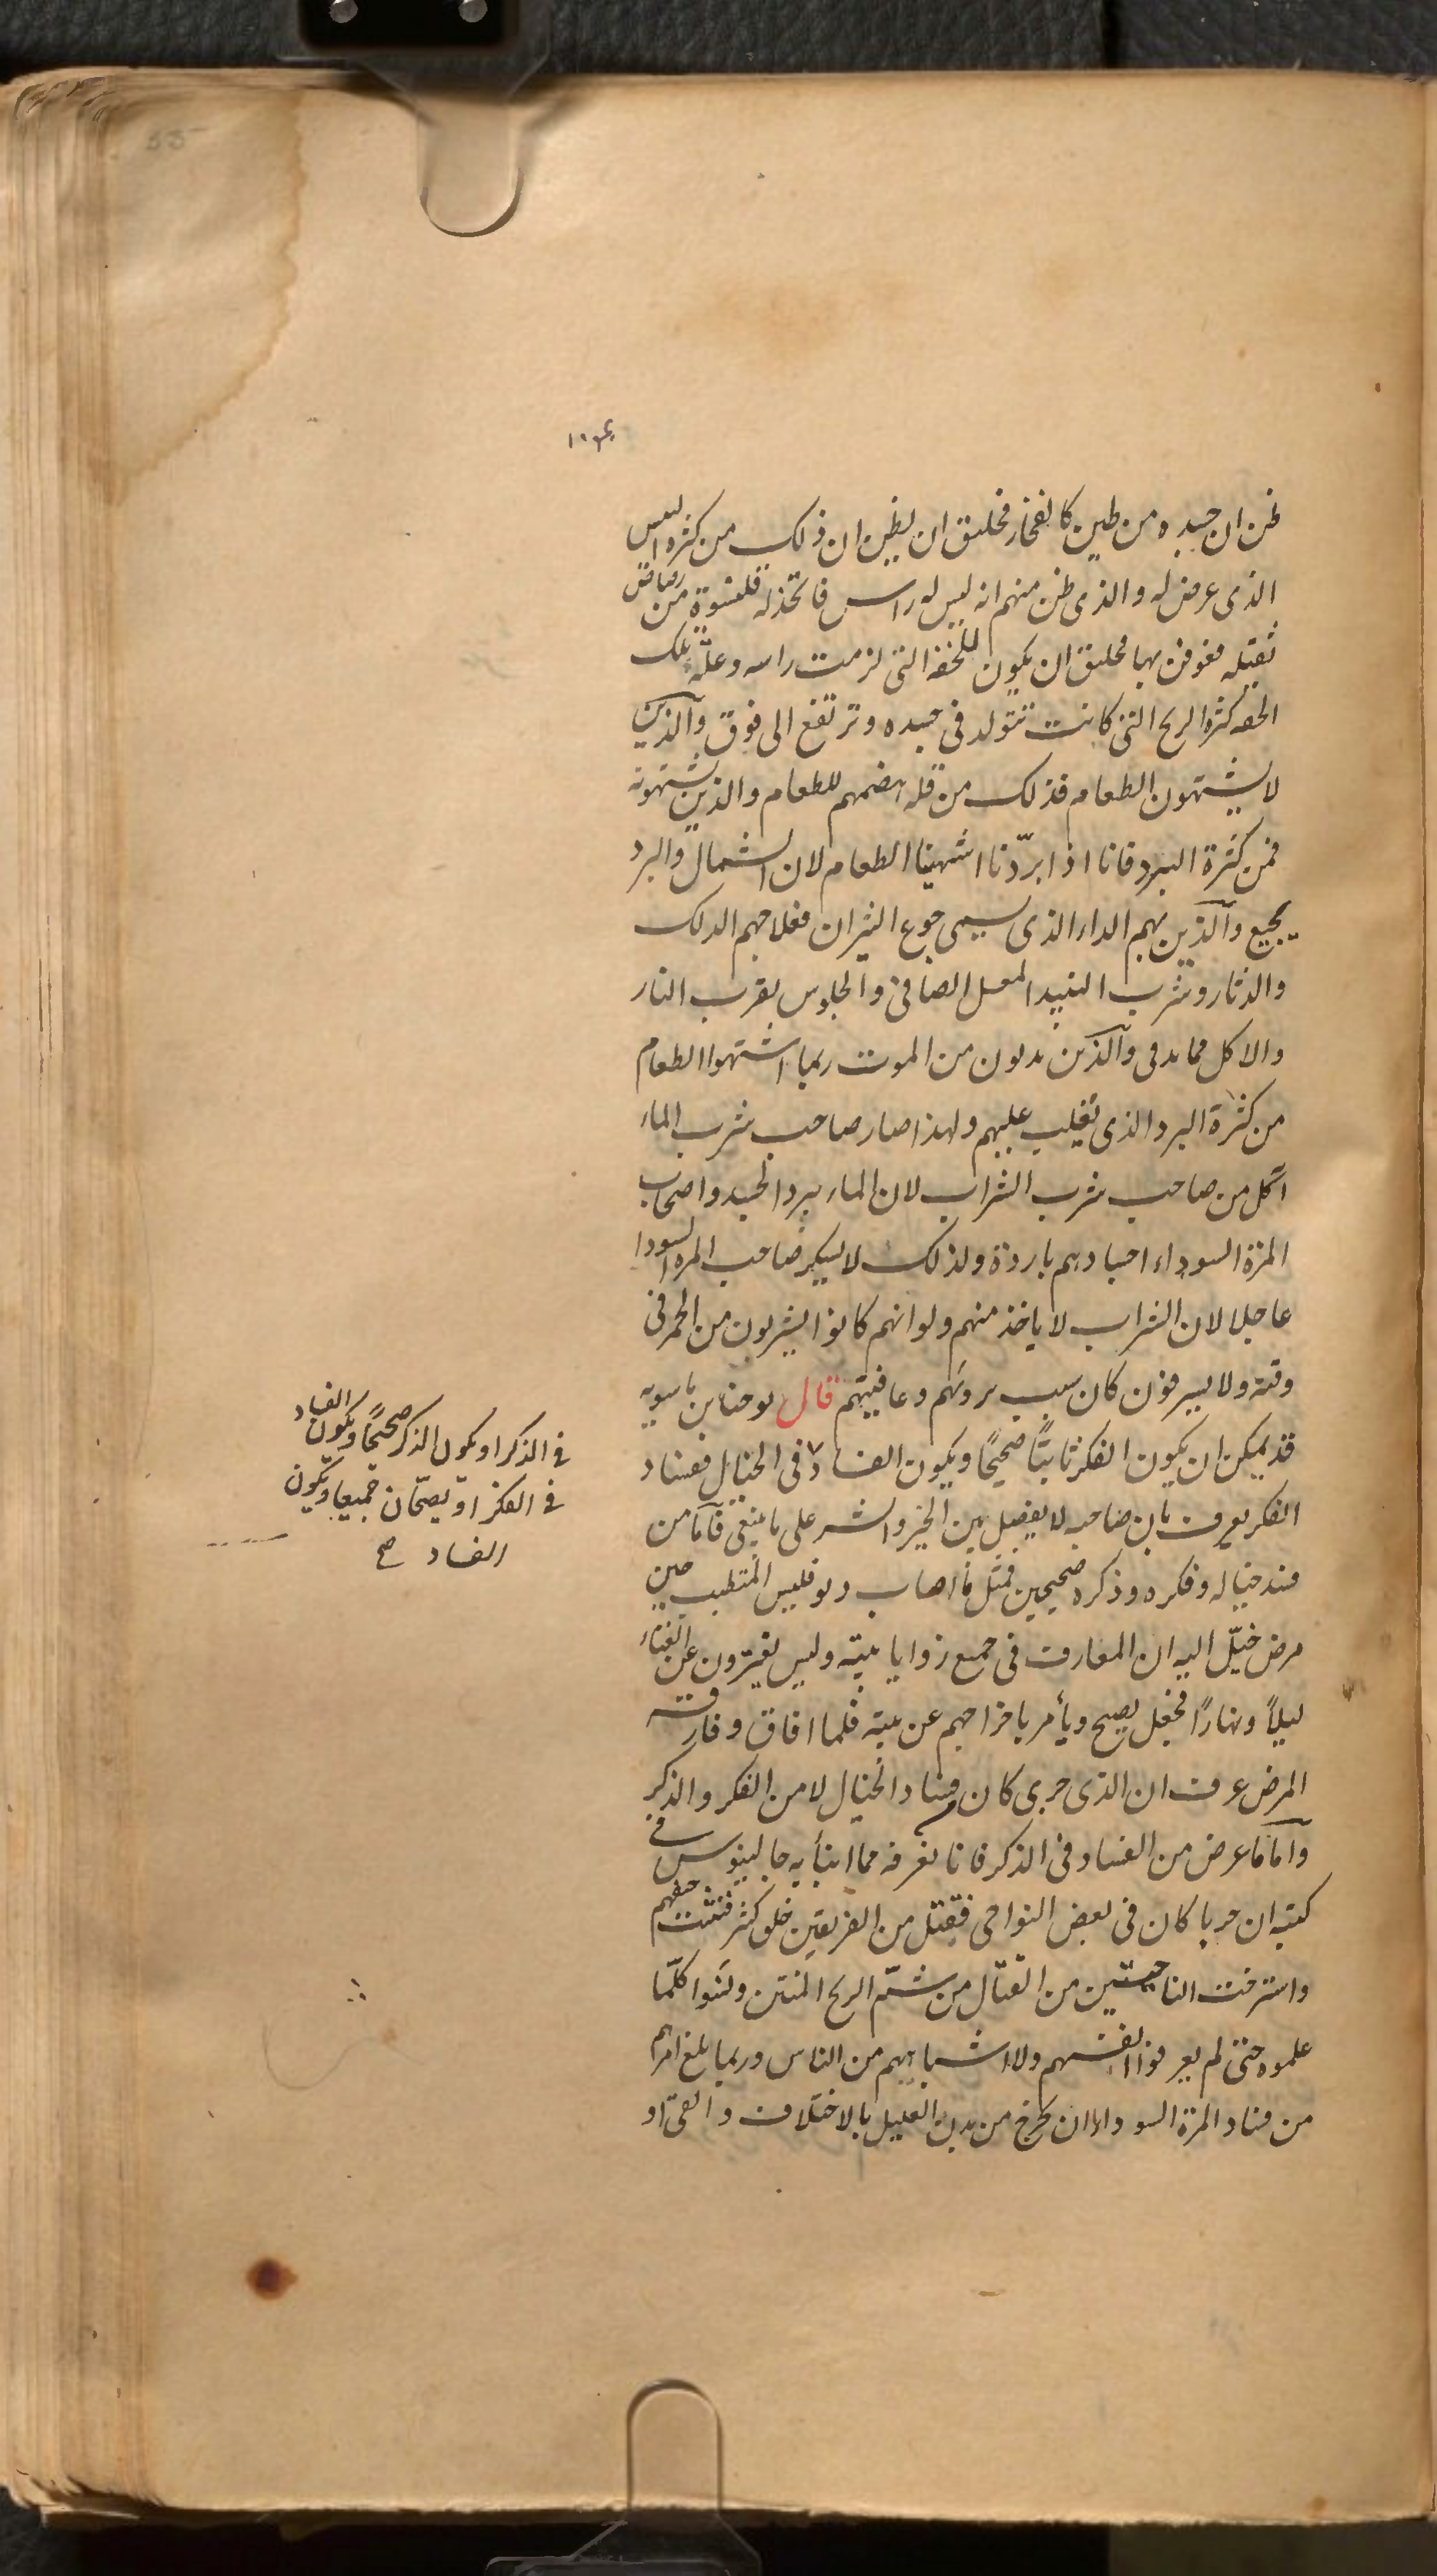 ظن ان جسده من طين كالفخار فخليق ان يظن ان ذلك من كثرة اليبس
الذى عرض له والذى ظن منهم انه ليس له راس فاتخذ له قلنسوة من رصاص
ثقيله فعوفى بها فخليق ان يكون للخفة التى لزمت راسه وعلة تلك
الخفه كثرة الريح التى كانت تتولد فى جسده وترتفع الى فوق والذين
لا يشتهون الطعام فذلك من قله هضمهم للطعام والذين يشتهونه
فمن كثرة البرد فانا اذا ابردنا اشتهينا الطعام لان الشمال والبرد
يجيع والذين بهم الداء الذى يسمى جوع الثيران فعلاجهم الدلك
والدثار وشرب النبيد المعسل الصافى والجلوس بقرب النار
والاكل مما يدفى والذين يدنون من الموت ربما اشتهوا الطعام
من كثرة البرد الذى تغلب عليهم ولهذا صار صاحب شرب الماء
آكل من صاحب شرب الشراب لان الماء يبرد الجسد واصحاب
المرة السوداء اجسادهم باردة ولذلك لا يسكر صاحب المرة السودا
عاجلا لان الشراب لا ياخذ منهم ولو انهم كانوا يشربون من الخمر فى
وقته ولا يسرفون كان سبب بروهم وعافيتهم قال يوحنا بن ماسويه
قد يمكن ان يكون الفكر ثابتًا صحيحًا ويكون الفساد فى الخيال ففساد
الفكر يعرف بان صاحبه لا يفصل بين الخير والشر على ما ينبغى فاما من
فسد خياله وفكره وذكره صحيحين فمثل ما اصاب المتطبب حين
مرض خيّل اليه ان المعازف فى جميع زوايا بيته وليس يفترون عن الغناء
ليلاً ونهارًا فجعل يصيح ويأمر باخراجهم عن بيته فلما افاق وفارقه
المرض عرف ان الذى جرى كان من فساد الخيال لا من الفكر والذكر
واما ما عرض من الفساد فى الذكر فانا نعرفه مما انبأ به جالينوس فى
كتبه ان حربا كان فى بعض النواحى فقتل من الفريقين خلق كثر فنتنت جيفهم
الناحيتين من القتال من شم الريح المنتن ونسوا كلّما
علموه حتى لم يعرفوا انفسهم ولا اشباههم من الناس وربما بلغ امرهم
من فساد المرة السودا الا ان يخرج من بدن العليل بالاختلاف والقى او
فى الذكر او يكون الذكر صحيحًا ويكون الفساد
فى الفكر او يصحّان جميعا ويكون
الفساد صح